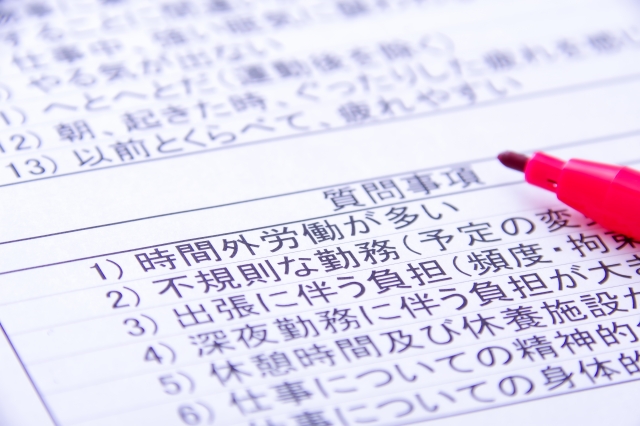 することに関連
仕事中、強い眠気に襲われ
やる気が出ない
へとへとだ（運動後を除く）
12）朝、起きた時、ぐったりした疲れを感じ
13）以前とくらべて、疲れやすい
質問事項
1）時間外労働が多い
2）不規則な勤務（予定の変
3）出張に伴う負担（頻度・拘束
4）深夜勤務に伴う負担が大き
5）休憩時間及び休養施設が
6）仕事についての精神的
仕事についての身体的